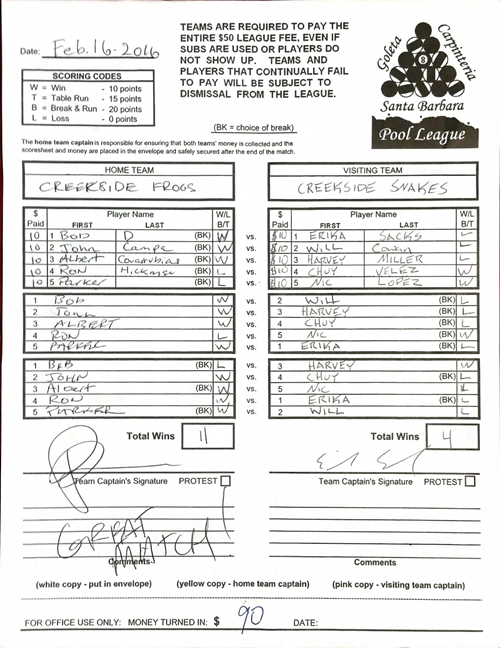 Date: Feb. 16-2016
TEAMS ARE REQUIRED TO PAY THE
ENTIRE $50 LEAGUE FEE, EVEN IF
SUBS ARE USED OR PLAYERS DO
NOT SHOW UP. TEAMS AND
PLAYERS THAT CONTINUALLY FAIL
TO PAY WILL BE SUBJECT TO
DISMISSAL FROM THE LEAGUE.
Goleta Carpinteria
8
Santa Barbara
Pool League
SCORING CODES
W = Win - 10 points
T = Table Run - 15 points
B = Break & Run - 20 points
L = Loss - 0 points
(BK = choice of break)
The home team captain is responsible for ensuring that both teams' money is collected and the
scoresheet and money are placed in the envelope and safely secured after the end of the match.
HOME TEAM VISITING TEAM
CREEKSIDE FROGS CREEKSIDE SNAKES
$ Paid Player Name FIRST LAST W/L B/T $ Paid Player Name FIRST LAST W/L B/T
10 1 Bob D (BK) W vs. $10 1 ERIKA SACKS L
10 2 John (BK) W vs. $10 2 WILL L
10 3 Albert Covarrubias (BK) W vs. $10 3 HARVEY MILLER L
10 4 RON Hickman (BK) L vs. $10 4 CHUY VELEZ W
10 5 Parker (BK) L vs. $10 5 NIC LOPEZ W
1 Bob W vs. 2 WILL (BK) L
2 John W vs. 3 HARVEY (BK) L
3 ALBERT W vs. 4 CHUY (BK) L
4 RON L vs. 5 NIC (BK) W
5 PARKER W vs. 1 ERIKA (BK) L
1 BOB (BK) L vs. 3 HARVEY W
2 JOHN W vs. 4 CHUY (BK) L
3 Albert (BK) W vs. 5 NIC L
4 RON W vs. 1 ERIKA (BK) L
5 PARKER (BK) W vs. 2 WILL L
Total Wins 11 Total Wins 4
Team Captain's Signature PROTEST Team Captain's Signature PROTEST
GREAT
MATCH!
Comments Comments
(white copy - put in envelope) (yellow copy - home team captain) (pink copy - visiting team captain)
FOR OFFICE USE ONLY: MONEY TURNED IN: $ 90 DATE: